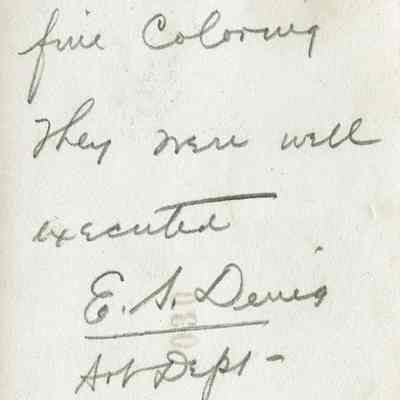 fine Coloring
They were well
executed
E. S. Denis
Art Dept -